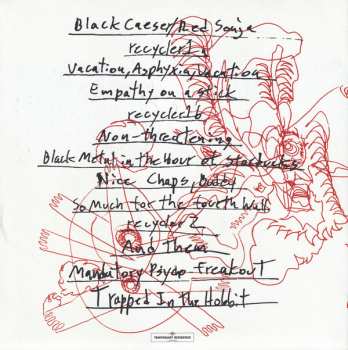 Black Caeser/Red Sonja
recycler1a
Vacation, Asphyxia, Vacation
Empathy on a stick
recycler1b
Non-threatening
Black Metal in the Hour of Starbucks
Nice Chaps, Buddy
So Much for the fourth Wall
recycler2
And Them
Mandatory Psyop Freakout
Trapped In the Hobbit
TEMPORARY RESIDENCE